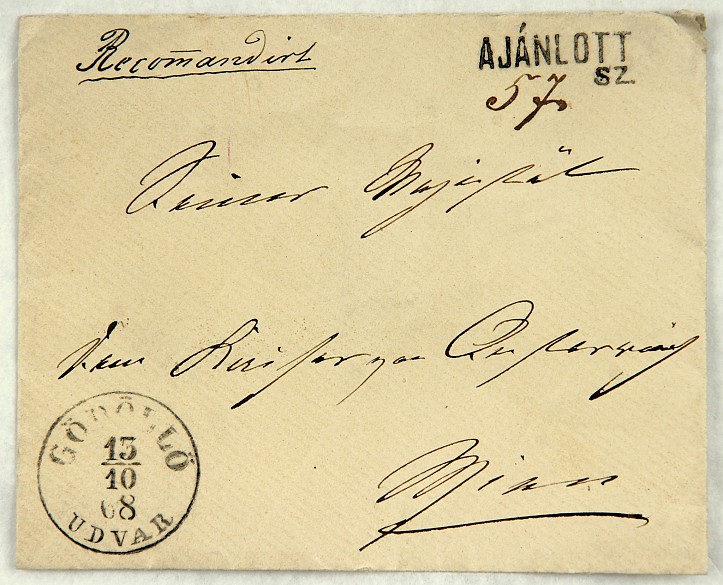 Recommandirt
AJÁNLOTT
SZ.
57.
Seiner Majestät
dem Kaiser von Oesterreich
Wien
GÖDÖLLŐ
13
10
68
UDVAR